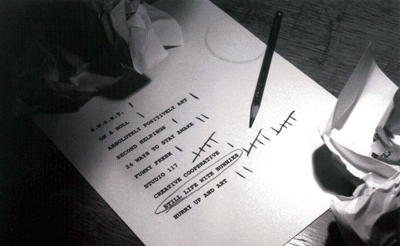 S.W.E.A.T.
ON A ROLL
ABSOLUTELY POSITIVELY ART
SECOND HELPINGS
24 WAYS TO STAY AWAKE
FUNKY FRESH
STUDIO 117
CREATIVE COOPERATIVE
STILL LIFE WITH BUNNIES
HURRY UP AND ART